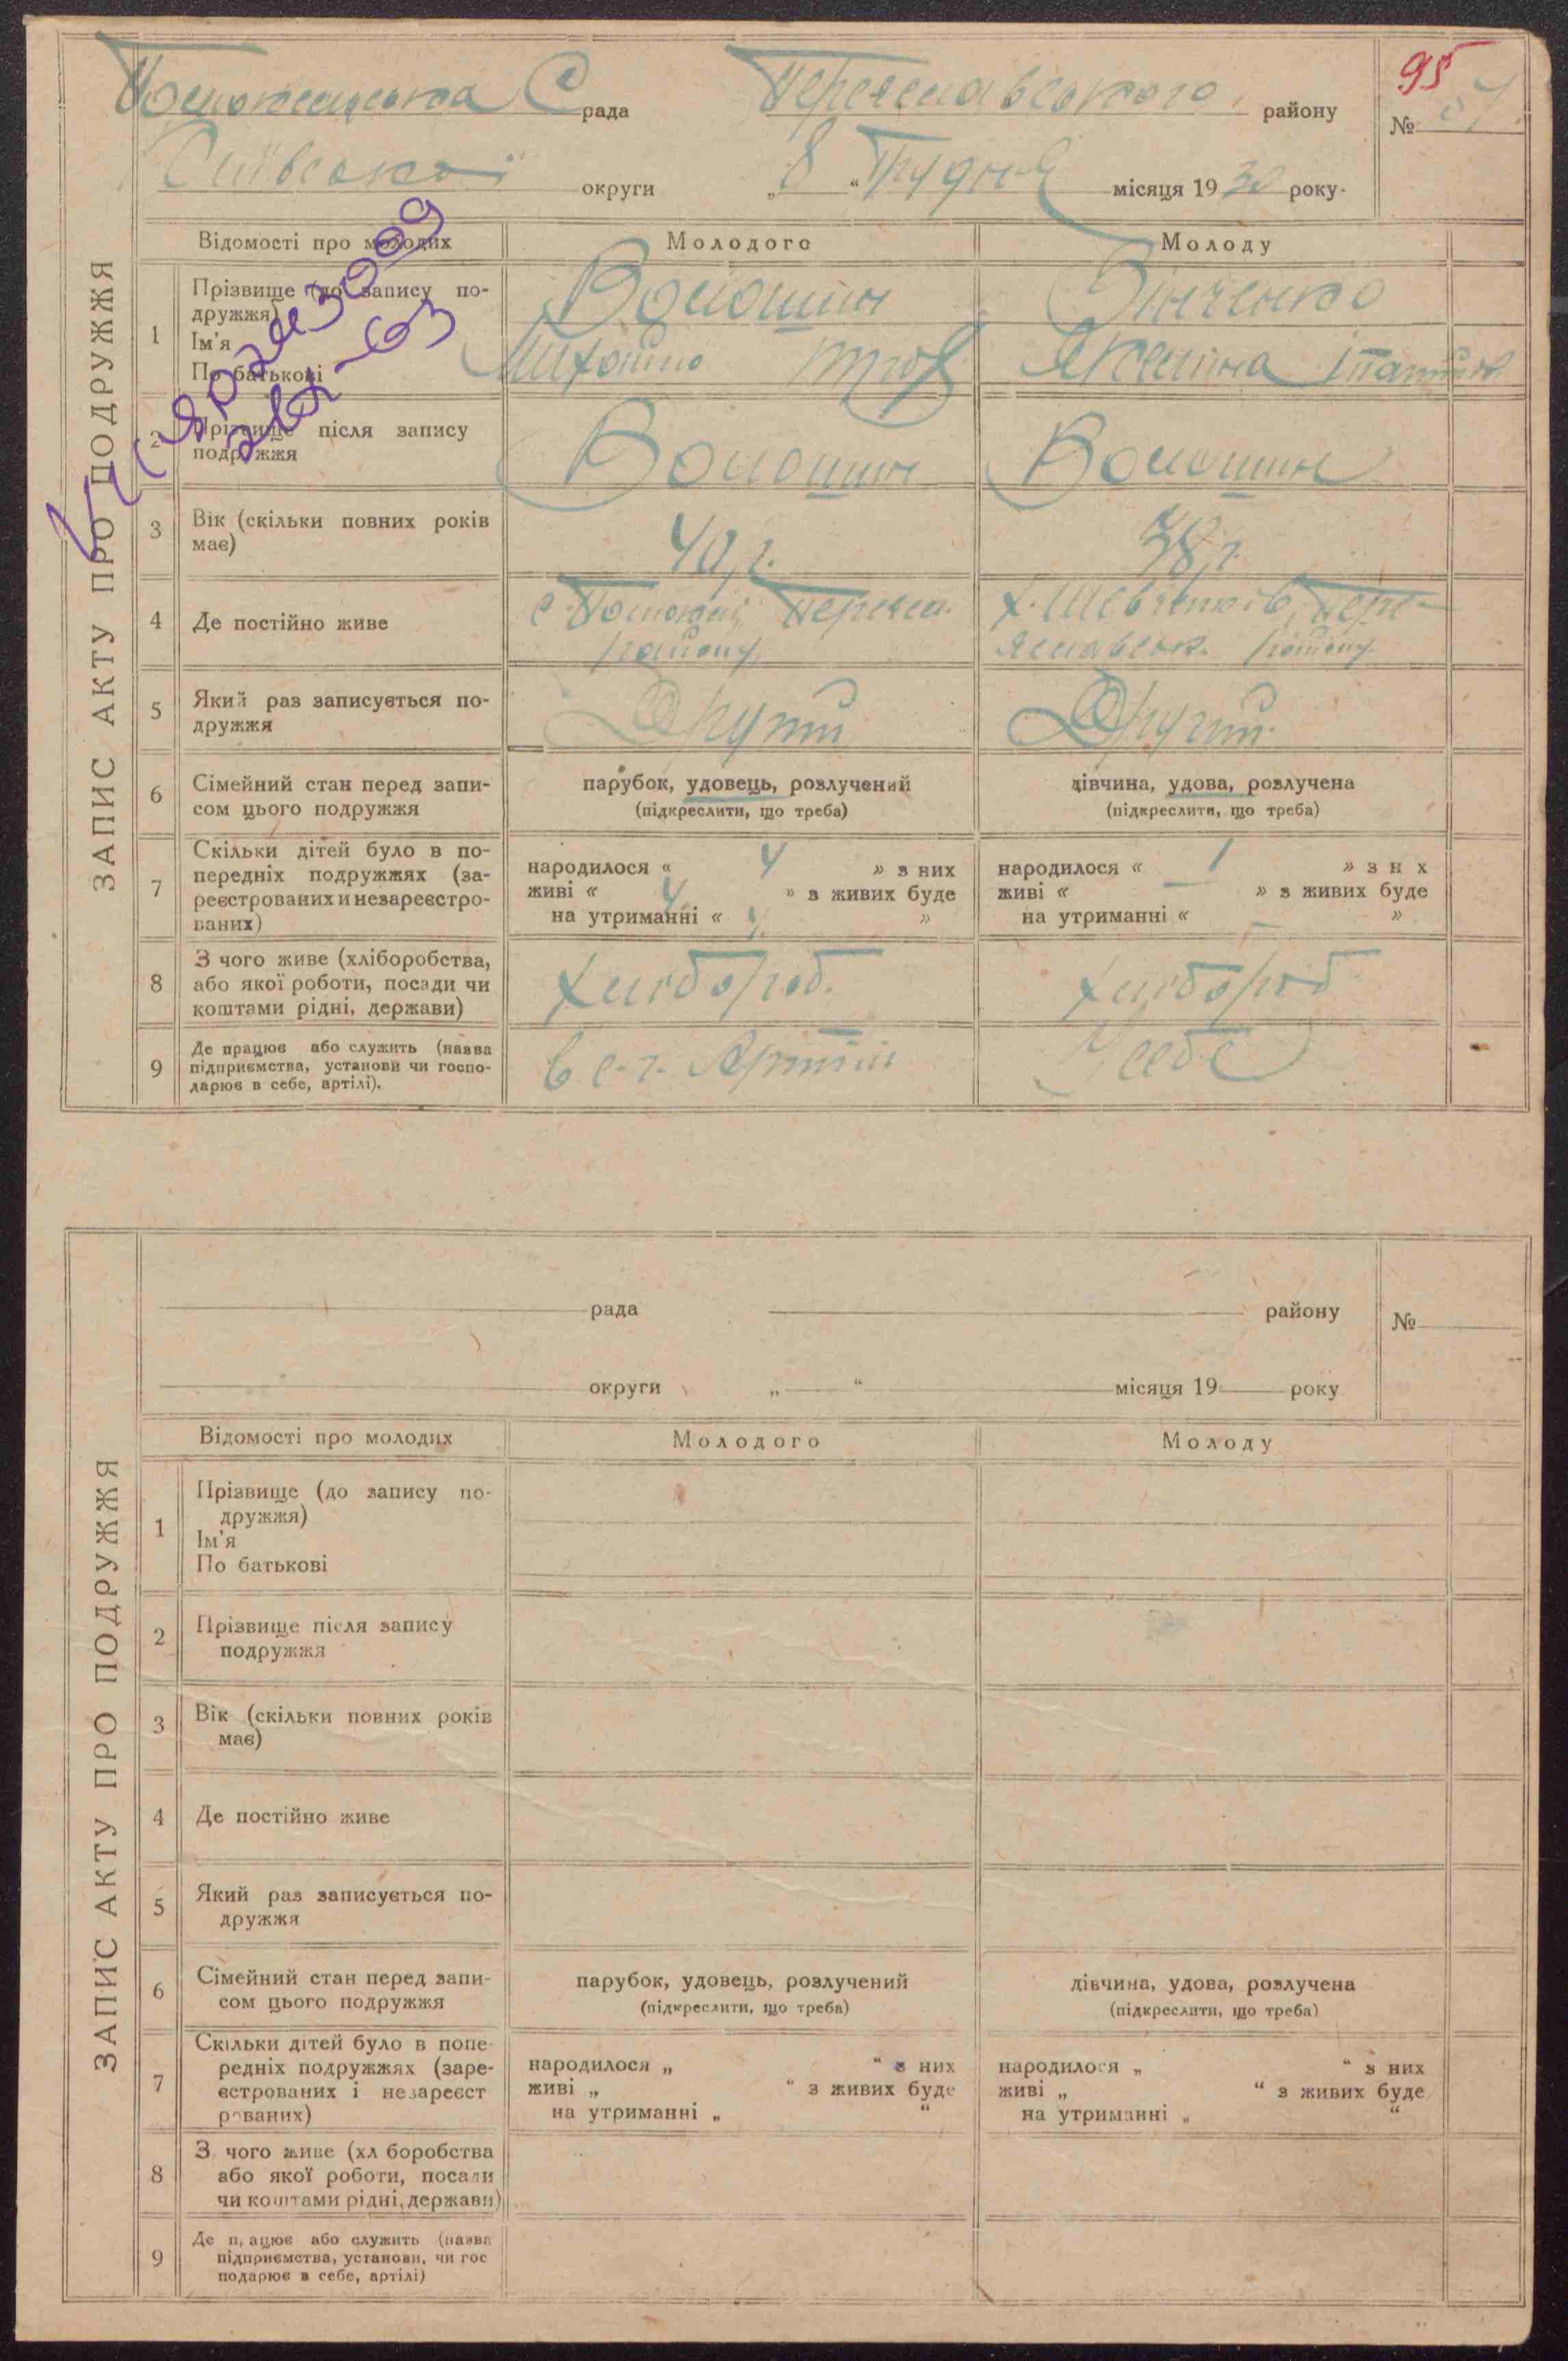 95
Положецька С рада Переяславського району № 57
Київської округи „8“ Грудня місяця 1930 року.
ЗАПИС АКТУ ПРО ПОДРУЖЖЯ
Відомості про молодих
Молодого
Молоду
1 Прізвище (до запису по-
дружжя)
Ім'я
По батькові
Волошин
Михайло
Зінченко
2 Прізвище після запису
подружжя
Волошин
Волошин
3 Вік (скільки повних років
має)
40 г.
38 г.
4 Де постійно живе
району
х. Шевченків, Пере-
яславськ. району
5 Який раз записується по-
дружжя
Другий
Другий
6 Сімейний стан перед запи-
сом цього подружжя
парубок, удовець, розлучений
(підкреслити, що треба)
дівчина, удова, розлучена
(підкреслити, що треба)
7 Скільки дітей було в по-
передніх подружжях (за-
реєстрованих и незареєстро-
ваних)
народилося « 4 » з них
живі « 4 » з живих буде
на утриманні « 4 »
народилося « 1 » з н х
живі « — » з живих буде
на утриманні « — »
8 З чого живе (хліборобства,
або якої роботи, посади чи
коштами рідні, держави)
хлібороб.
хлібороб
9 Де працює або служить (назва
підприємства, установи чи госпо-
дарює в себе, артілі).
в с.-г. Артілі
У себе
ЗАПИС АКТУ ПРО ПОДРУЖЖЯ
рада району №
округи „ “ місяця 19 року
Відомості про молодих
Молодого
Молоду
1 Прізвище (до запису по-
дружжя)
Ім'я
По батькові
2 Прізвище після запису
подружжя
3 Вік (скільки повних років
має)
4 Де постійно живе
5 Який раз записується по-
дружжя
6 Сімейний стан перед запи-
сом цього подружжя
парубок, удовець, розлучений
(підкреслити, що треба)
дівчина, удова, розлучена
(підкреслити, що треба)
7 Скільки дітей було в попе-
редніх подружжях (заре-
єстрованих і незареєст
рованих)
народилося „ “ з них
живі „ “ з живих буде
на утриманні „ “
народилося „ “ з них
живі „ “ з живих буде
на утриманні „ “
8 З чого живе (хл боробства
або якої роботи, посади
чи коштами рідні, держави)
9 Де працює або служить (назва
підприємства, установи, чи гос
подарює в себе, артілі)